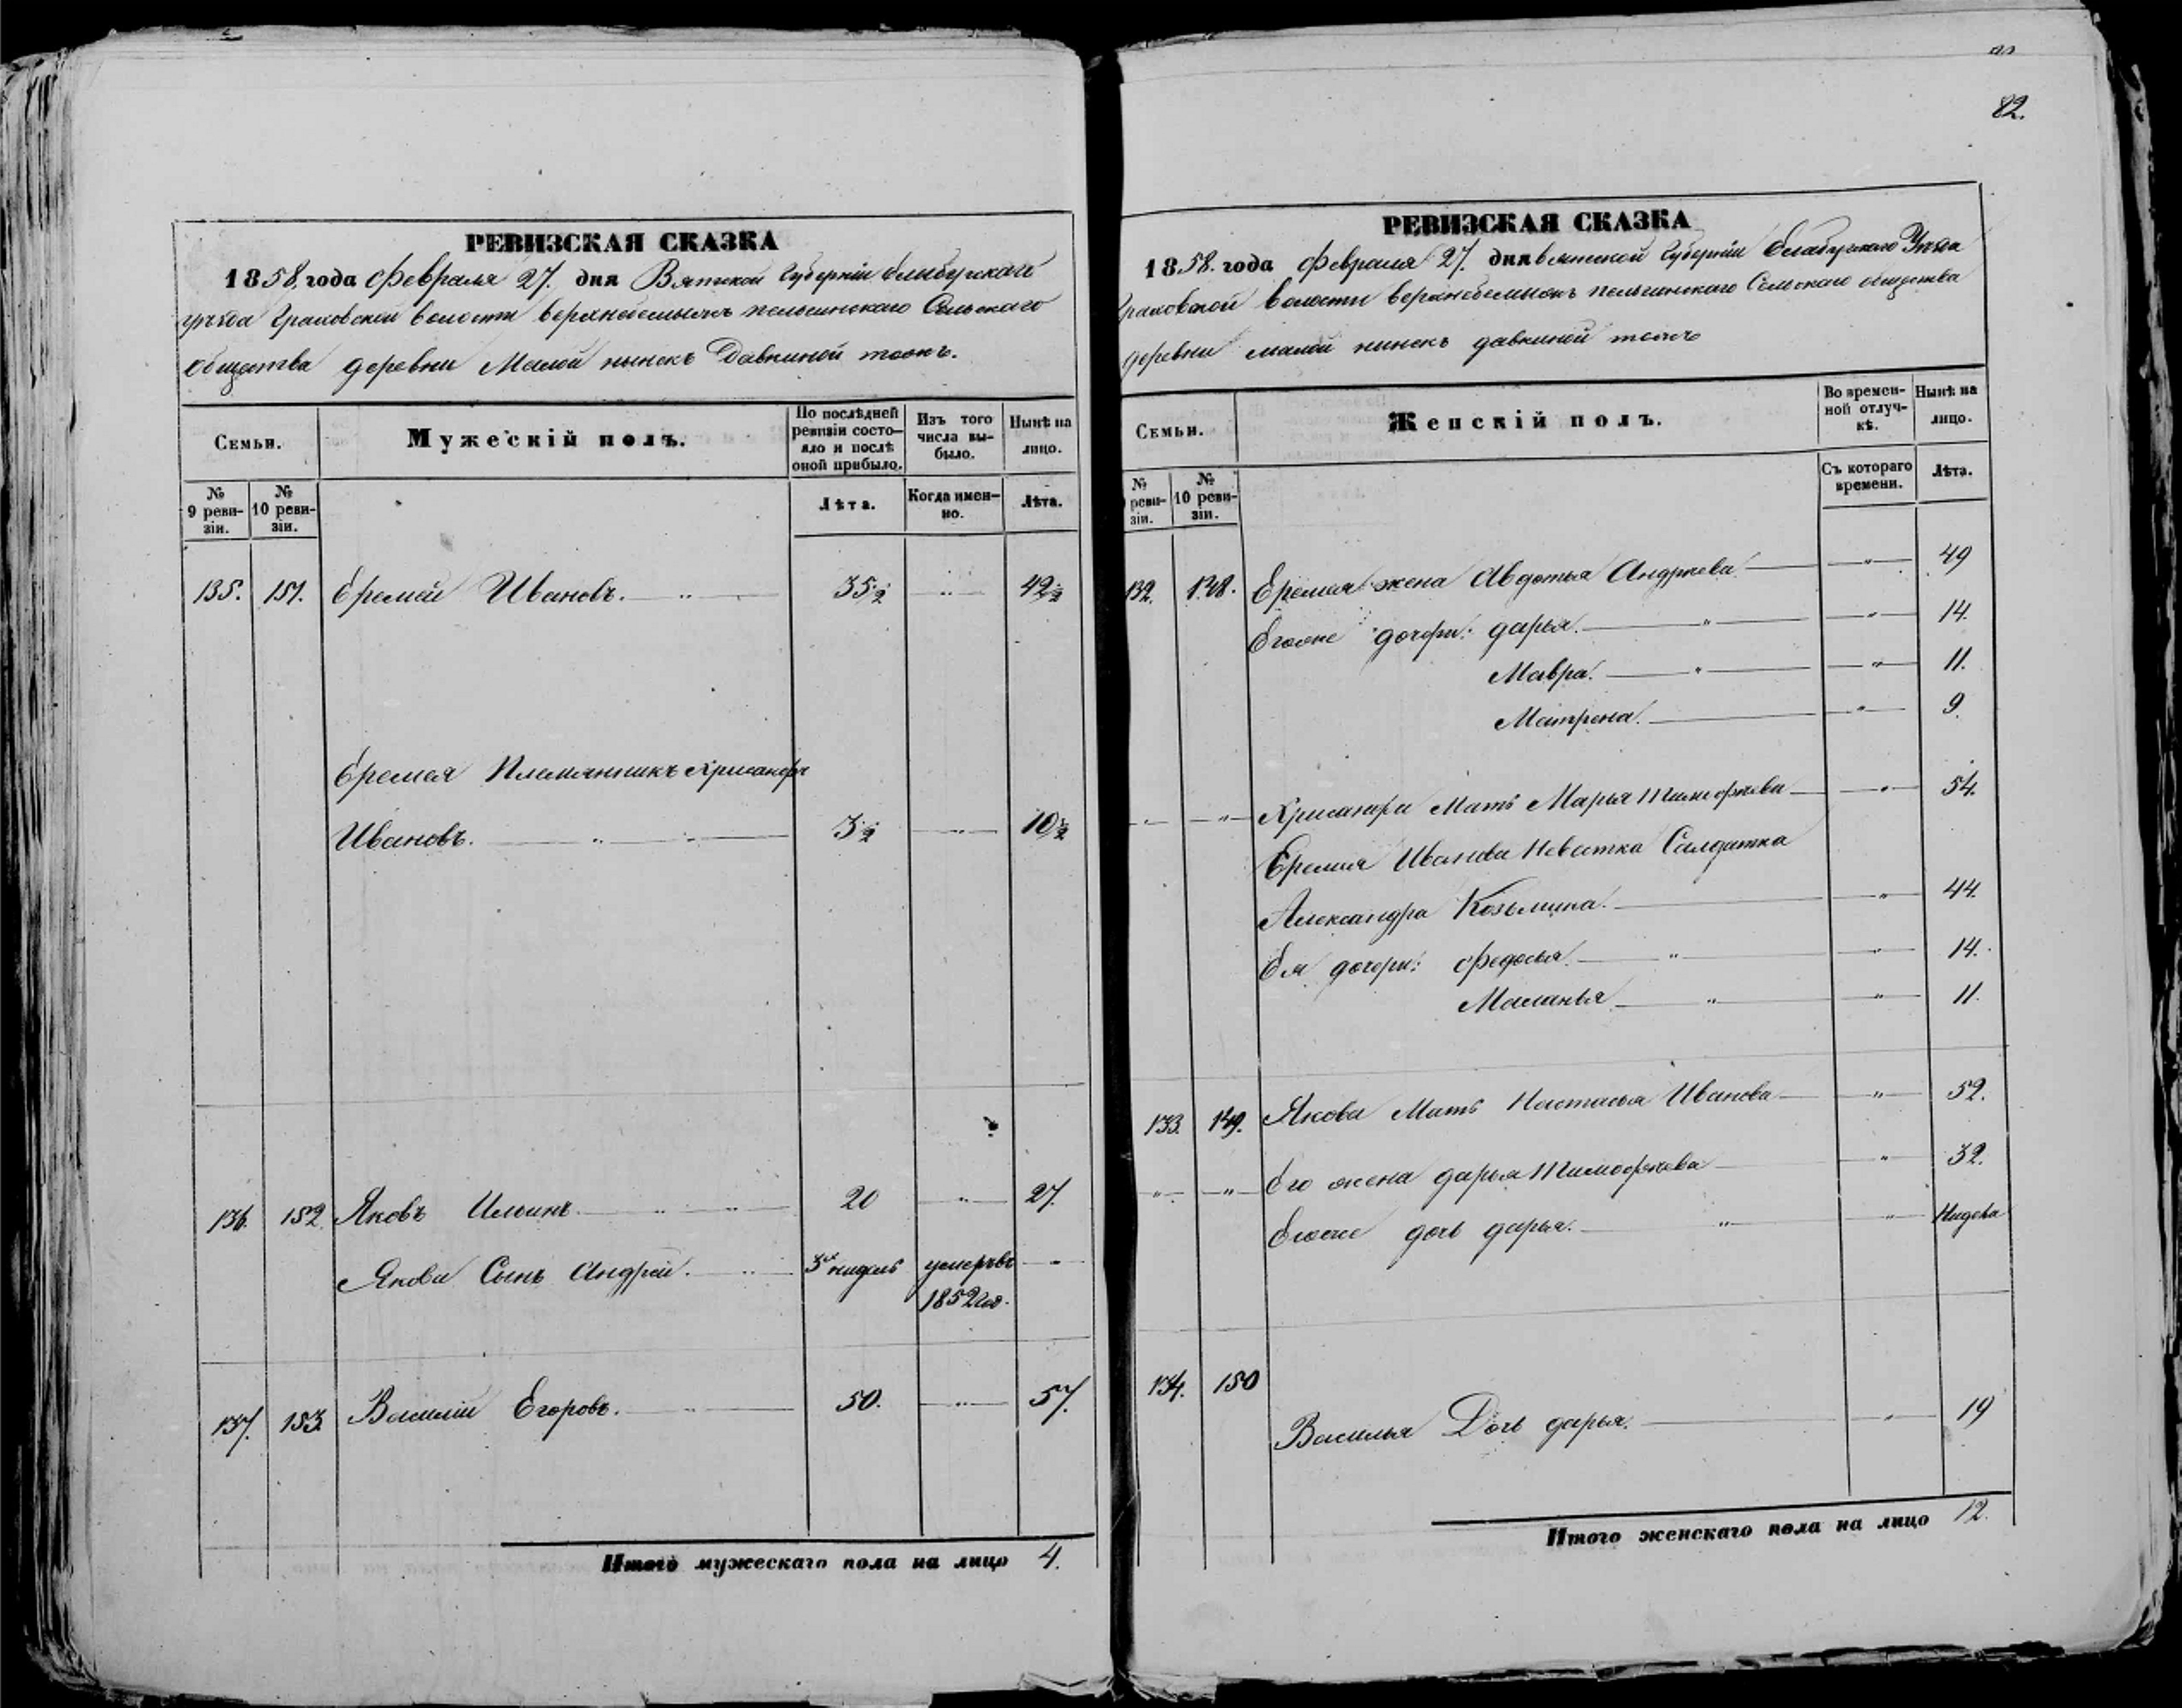 82.
РЕВИЗСКАЯ СКАЗКА
1858. года Февраля 27. дня Вятской Губернiи Елабугскаго
уѣзда Граховской волости верхнебемыжъ пельгинскаго Сельскаго
общества деревни Малой нынекъ Давкиной тожъ.
Семьи.
Мужескiй полъ.
По послѣдней ревизiи состояло и послѣ оной прибыло.
Изъ того числа выбыло.
Нынѣ на лицо.
№ 9 ревизiи.
№ 10 ревизiи.
Лѣта.
Когда именно.
Лѣта.
135. 151. Еремей Ивановъ. 35½ " 42½
Еремея Племянникъ Хрисанфъ
Ивановъ. 3½ " 10½
136. 152 Яковъ Ильинъ 20 " 27.
Якова Сынъ Андрей. 3х нидель умеръ въ
1852 год.
137. 153. Василiй Егоровъ. 50. " 57.
Итого мужескаго пола на лицо 4.
РЕВИЗСКАЯ СКАЗКА
1858. года Февраля 27. дня вятской Губернiи Елабугскаго Уѣзда
Граховской волости верхнебемыжъ пельгинскаго Сельскаго общества
деревни малой нинекъ давкиной тожъ
Семьи.
Женскiй полъ.
Во временной отлучкѣ.
Нынѣ на лицо.
ревизiи.
№ 10 ревизiи.
Съ котораго времени.
Лѣта.
132. 148. Еремея жена Авдотья Андреева " 49
Егоже дочери: дарья. " 14.
Мавра. " 11.
Матрена. " 9.
" Хрисанфа Мать Марья Тимофеева " 54.
Еремея Иванова Невестка Салдатка
Александра Козьмина. " 44.
Ея дочери: Федосья. " 14.
Маланья " 11.
133. 149. Якова Мать Настасья Иванова " 52.
" " Его жена дарья Тимофеева " 32.
Егоже дочь дарья. " Нидѣля
134. 150
Василья Дочь дарья. " 19
Итого женскаго пола на лицо 12.